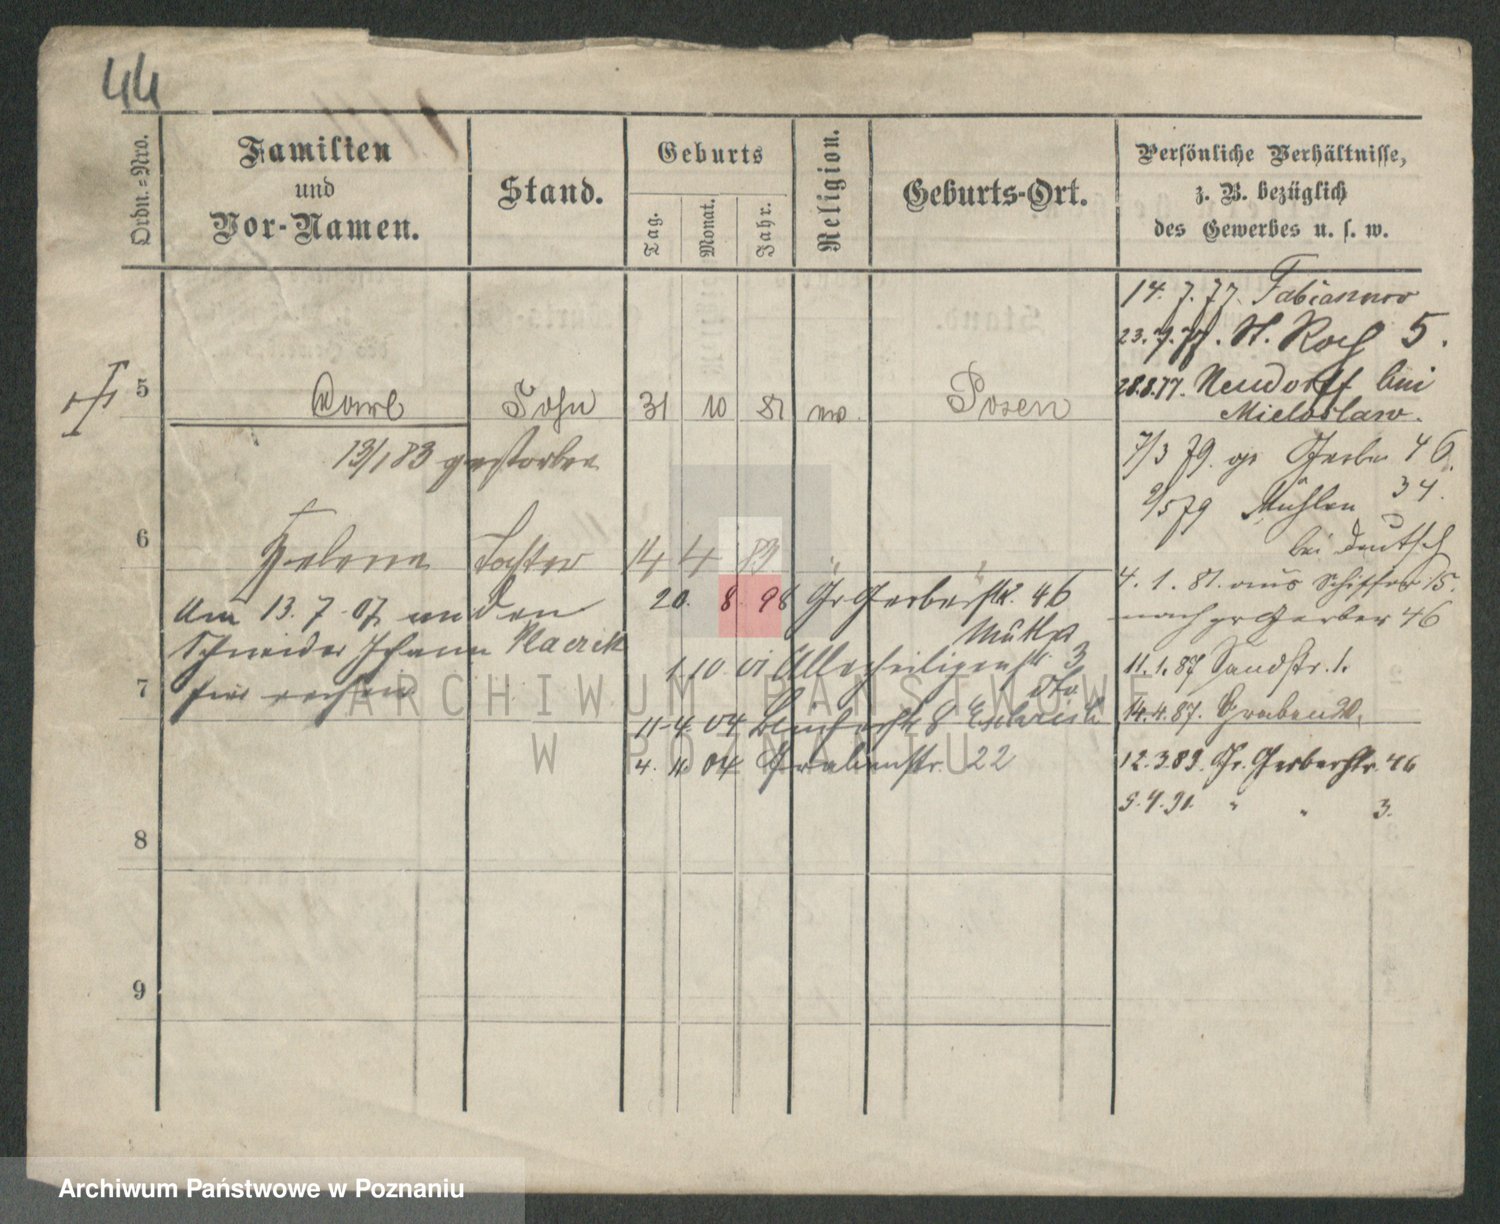 44
Ordn.=Nro.
Familien
und
Vor-Namen.
Stand.
Geburts
Tag.
Monat.
Jahr.
Religion.
Geburts-Ort.
Persönliche Verhältnisse,
z. B. bezüglich
des Gewerbes u. s. w.
14. 7. 77. Fabianowo
23. 7. 77. St. Roch 5.
28.8.77. Neudorff bei
Miloslaw.
5 Carl Sohn 31 10 81 Posen
13/1 83 gestorben
7/3 79. gr Gerber 46.
9/5 79 Mühlen 34.
bei Deutsch
6 Helene Tochter 14 4 83 " "
4. 1. 81. aus Schiffer 15.
nach gr Gerber 46
Am 13. 7. 07 an den
Schneider Johann
20. 8. 98 Gr Gerberstr. 46
Mutter
1. 10. 01 Allerheiligenstr. 3
11. 1. 87 Sandstr. 1.
7
11. 4. 04 8
14. 4. 87. Graben
4. 11. 04 Grabenstr. 22
12. 3. 89. Gr. Gerberstr. 46
9. 4. 91. " " 3.
8
9
ARCHIWUM PAŃSTWOWE
W POZNANIU
Archiwum Państwowe w Poznaniu